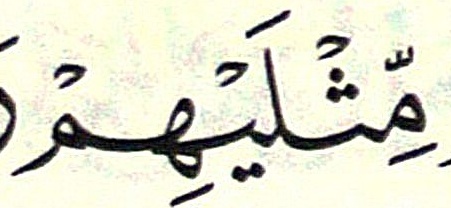 مِّثْلَيْهِمْ